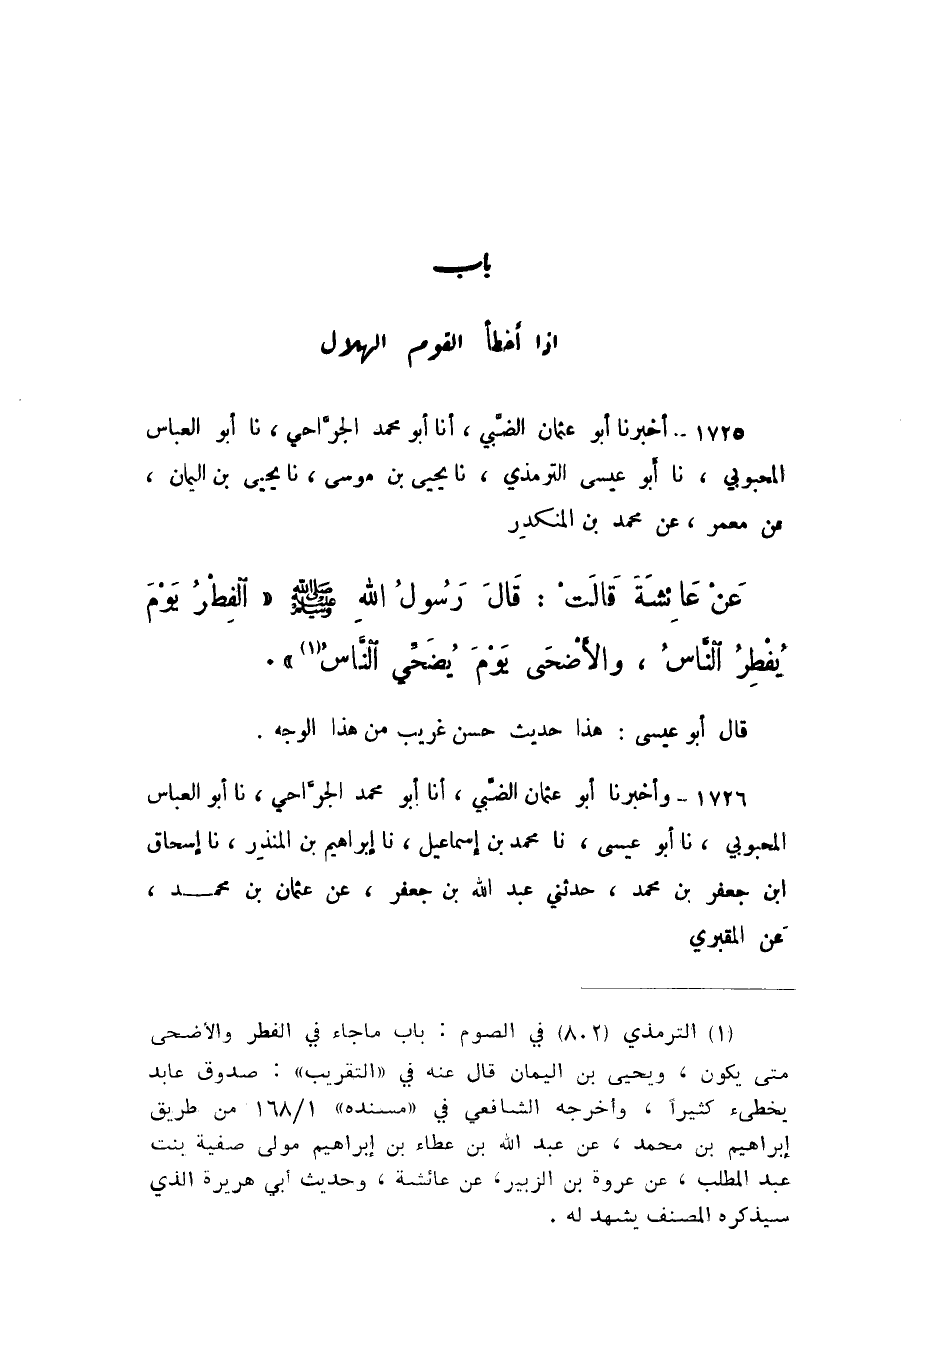 باب
اذا أخطأ القوم الهلال
١٧٢٥ - أخبرنا أبو عثمان الضّبي ، أنا أبو محمد الجرَّاحي ، نا أبو العباس
المحبوبي ، نا أبو عيسى الترمذي ، نا يحيى بن موسى ، نا يحيى بن اليمان ،
عن معمر ، عن محمد بن المنكدر
عَنْ عَائِشَةَ قَالَتْ : قَالَ رَسُولُ اللهِ ﷺ « الْفِطْرُ يَوْمَ
يُفْطِرُ النَّاسُ ، والأَضْحَى يَوْمَ يُضَحِّي النَّاسُ(١) » .
قال أبو عيسى : هذا حديث حسن غريب من هذا الوجه .
١٧٢٦ - وأخبرنا أبو عثمان الضّبي ، أنا أبو محمد الجرَّاحي ، نا أبو العباس
المحبوبي ، نا أبو عيسى ، نا محمد بن إسماعيل ، نا إبراهيم بن المنذر ، نا إسحاق
ابن جعفر بن محمد ، حدثني عبد الله بن جعفر ، عن عثمان بن محمـــد ،
عن المقبري
(١) الترمذي (٨٠٢) في الصوم : باب ماجاء في الفطر والأضحى
متى يكون ، ويحيى بن اليمان قال عنه في «التقريب» : صدوق عابد
يخطىء كثيراً ، وأخرجه الشافعي في «مسنده» ١٦٨/١ من طريق
إبراهيم بن محمد ، عن عبد الله بن عطاء بن إبراهيم مولى صفية بنت
عبد المطلب ، عن عروة بن الزبير، عن عائشة ، وحديث أبي هريرة الذي
سيذكره المصنف يشهد له .